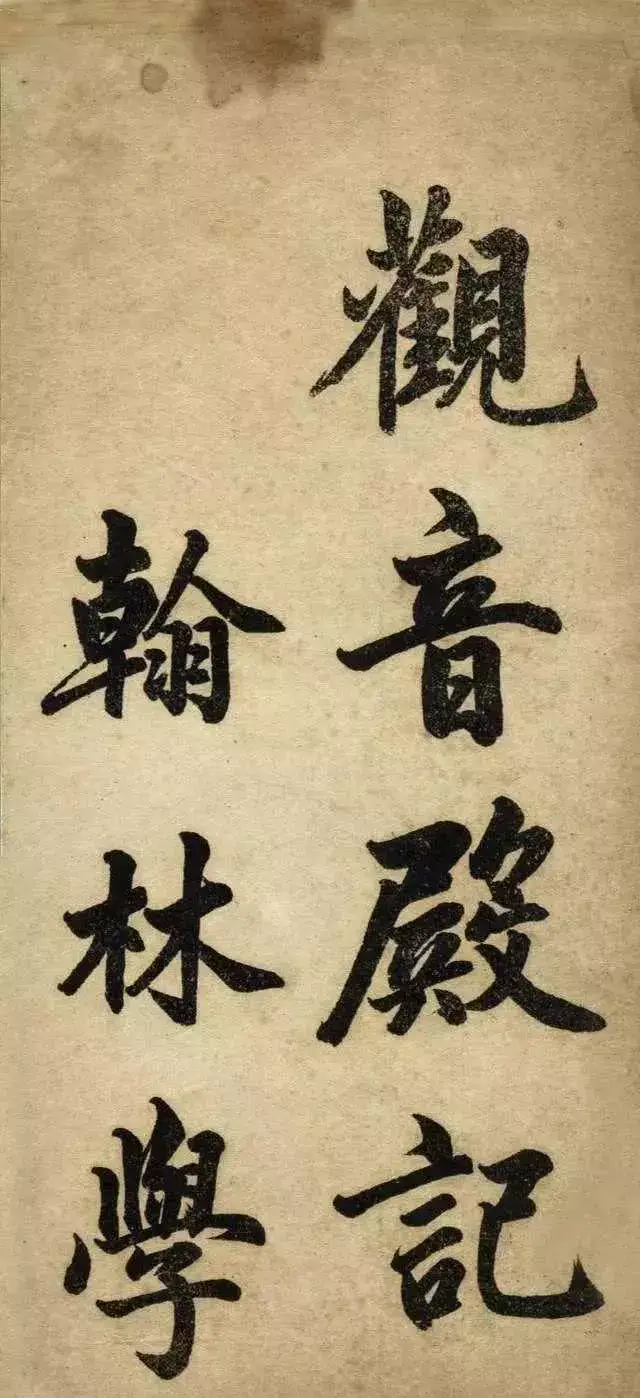 觀音殿記
翰林學